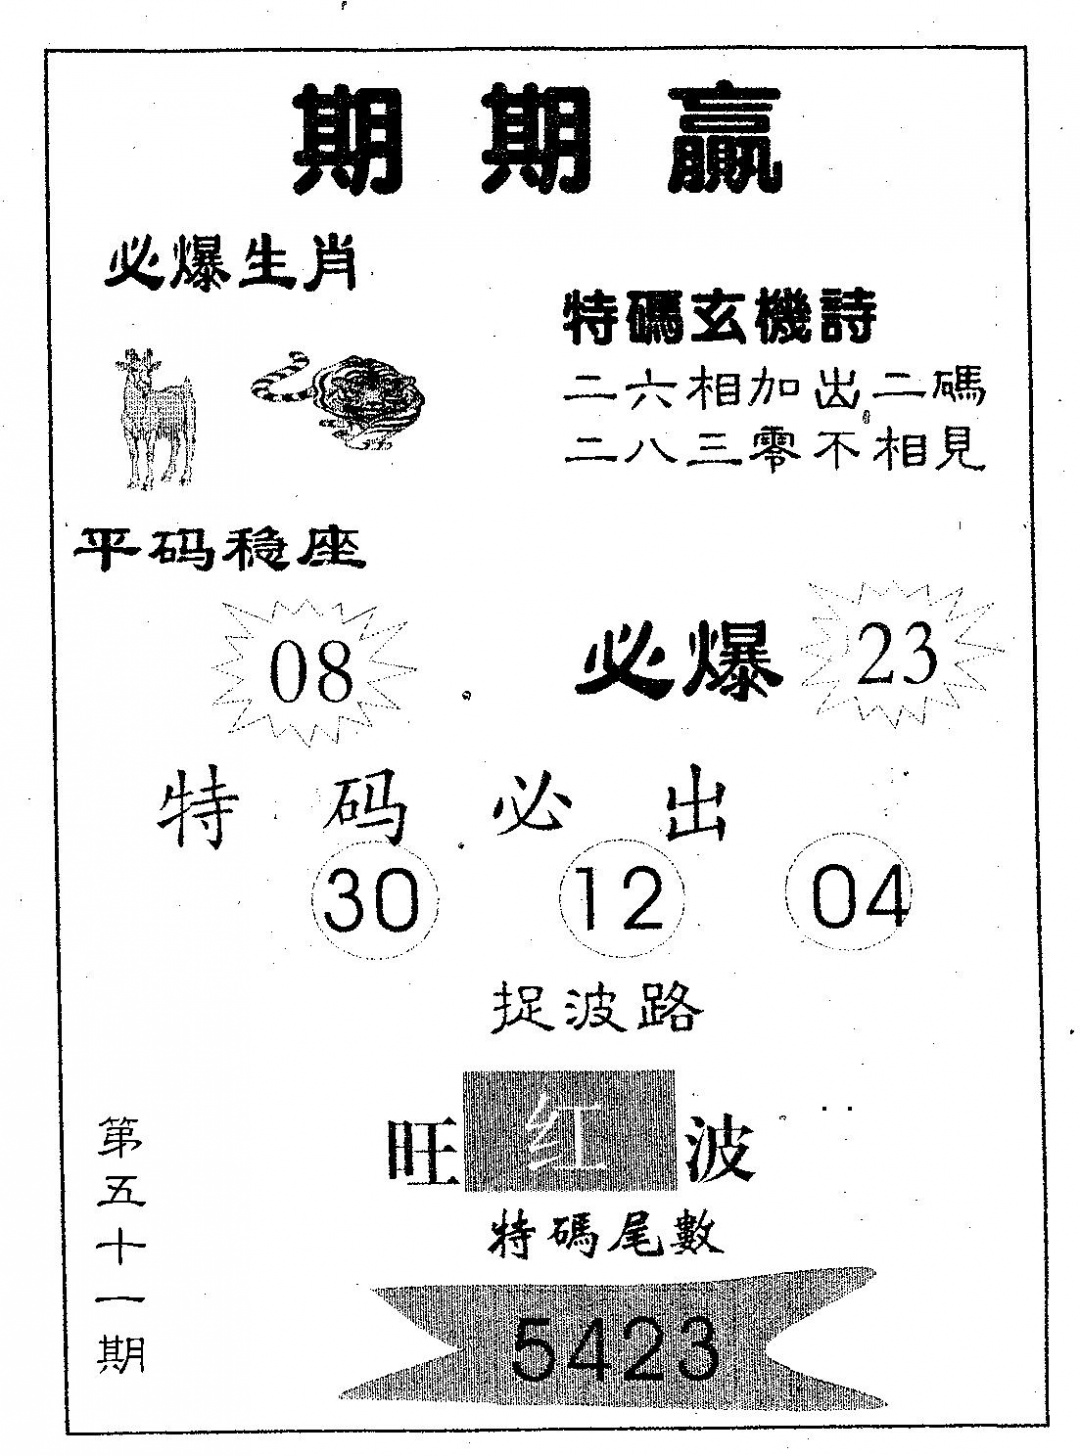 期期贏
必爆生肖
特碼玄機詩
二六相加出二碼
二八三零不相見
平码稳座
08
必爆 23
特码必出
30 12 04
捉波路
旺红波
特碼尾數
5423
第五十一期